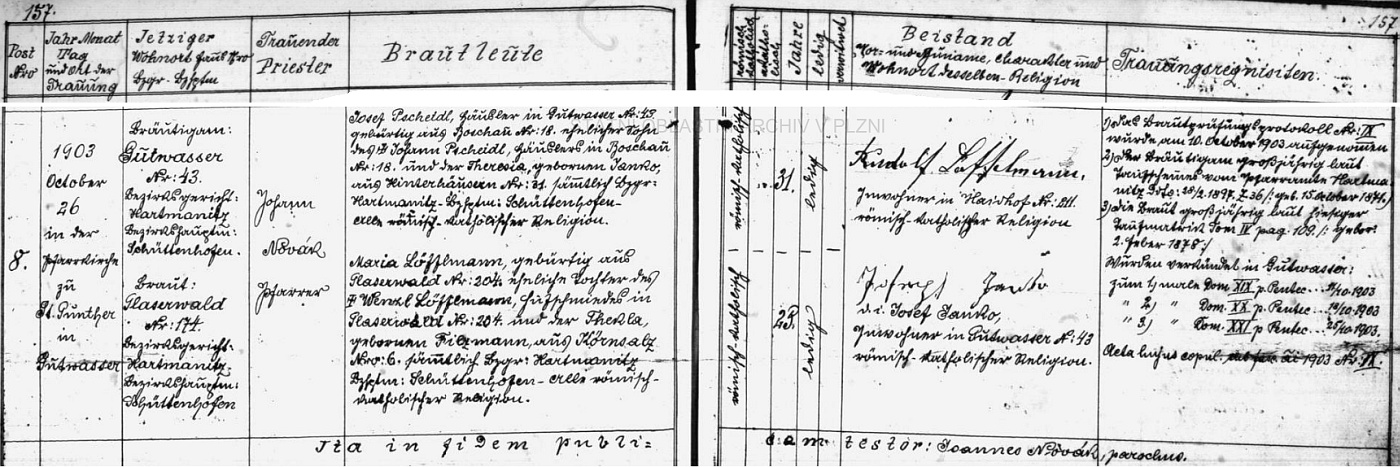 157.
Post Nro
Jahr Monat
Tag
und Ort der
Trauung
Jetziger
Wohnort Haus Nro
Bzgr. Bzhptm
Trauender
Priester
Brautleute
römisch
katholisch
akatho-
lisch
Jahre
ledig
verwitwet
Beistand
Vor- und Zuname, Charakter und
Wohnort desselben - Religion
Trauungsrequisiten.
157
8.
1903
October
26
in der
Pfarrkirche
zu
St. Gunther
in
Gutwasser
Bräutigam:
Gutwasser
Nr: 43.
Bezirksgericht:
Hartmanitz
Bezirkshauptm:
Schüttenhofen.
Braut:
Glaserwald
Nr: 174.
Bezirksgericht:
Hartmanitz,
Bezirkshauptm:
Schüttenhofen
Johann
Novák
Pfarrer
Josef Pscheidl, Häusler in Gutwasser Nr: 43.
gebürtig aus Boschau Nr: 18. ehelicher Sohn
des Johann Pscheidl, Häuslers in Boschau
Nr: 18. und der Theresia, gebornen Janko,
aus Hinterhäusern Nr: 31. sämtlich Bzgr:
Hartmanitz - Bzhptm: Schüttenhofen -
alle römisch-katholischer Religion.
Maria Löfflmann, gebürtig aus
Glaserwald Nr: 204. eheliche Tochter des
Wenzl Löfflmann, Hufschmiedes in
Glaserwald Nr: 204. und der Thekla,
gebornen Filzmann, aus Körnsalz
Nro: 6. sämtlich Bzgr: Hartmanitz
Bzhptm: Schüttenhofen - alle römisch-
katholischer Religion.
römisch katholisch
31.
ledig
römisch katholisch
ledig
ARCHIV V PLZNI
Rudolf Löffelmann,
Inwohner in Haidhof Nr:
römisch-katholischer Religion
Josef Janko
d. i. Josef Janko,
Inwohner in Gutwasser Nr: 43
römisch-katholischer Religion.
1) das Brautprüfungsprotokoll Nr: IX
wurde am 10. October 1903 aufgenommen
2) der Bräutigam großjährig laut
Taufscheines vom Pfarramte Hartma-
nitz 1897. Z 36 /: geb. 15. October 187
3) die Braut großjährig laut hiesiger
Taufmatrik Tom IV pag. 109. /: gebor:
2. Feber 1878 :/
Wurden verkündet in Gutwasser:
zum 1) male Dom. XIX p. Pentec. 10.1903
" 2) " Dom. XX p. Pentec. 10.1903
" 3) " Dom. XXI p. Pentec. 25/10.1903.
Acta hujus copul. 1903 Nr: IX.
Ita in fidem publi=
cam testor: Joannes Novák, parochus.